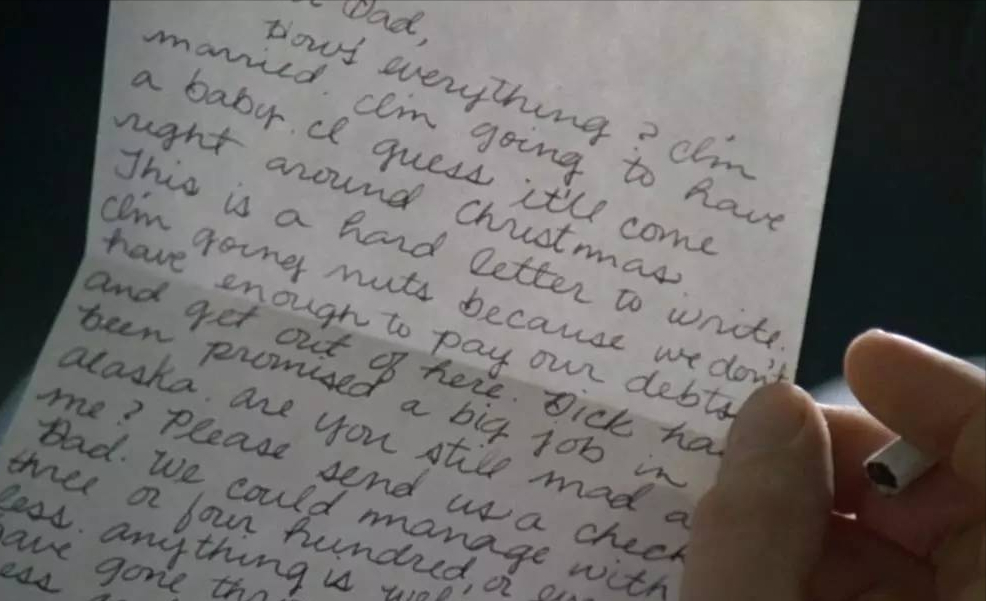 Dad,
How's everything? I'm
married. I'm going to have
a baby. I guess it'll come
right around Christmas.
This is a hard letter to write.
I'm going nuts because we don't
have enough to pay our debts
and get out of here. Dick ha
been promised a big job in
alaska. are you still mad a
me? Please send us a check
Dad. We could manage with
three or four hundred, or eve
less. anything is wel
ave gone thr
ess